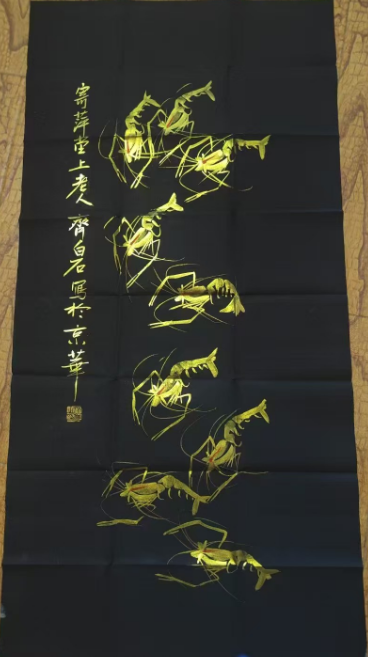 寄萍堂上老人齊白石寫於京華